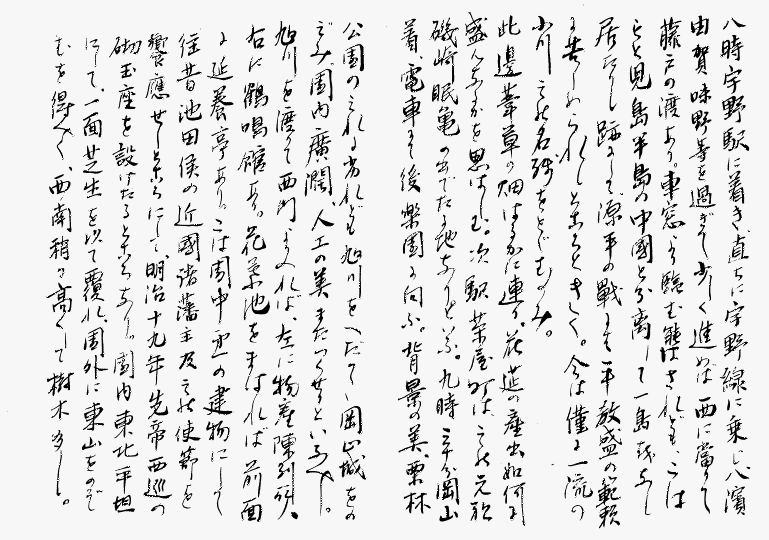 八時宇野駅に着き直ちに宇野線に乗じ八濱
由賀味野等を過ぎて少しく進めば西に當りて
藤戸の渡あり。車窓より臨む能はされども、こは
もと見島半島の中國と分離して一島をなし
居たりし跡にして、源平の戰にて平教盛の範頼
に苦しめられしところときく。今は僅に一流の
小川之れ名残をとどむのみ。
此邊葦草の畑はるかに連り、花莚の産出如何に
盛んなるかを思はしむ。次駅茶屋町は、之れ元祖
磯崎眠亀の出でたる地なりといふ。九時三十分岡山
着、電車にて後樂園に向ふ。背景の美、栗林
公園のそれに劣れども旭川をへだてゝ岡山城をの
ぞみ、園内廣濶、人工の美またつくせりといふべし。
旭川を渡りて西門より入れば、左に物産陳列所、
右に鶴鳴館あり。花葉池をまはれば前面
に延養亭あり。こは園中一の建物にして
往昔池田侯の近國諸藩主及之れ使節を
饗應せしところにして、明治十九年先帝西巡の
砌玉座を設けたるところなり。園内東北平坦
にして、一面芝生を以て覆れ、園外に東山をのぞ
むを得べく、西南稍々高くして樹木多し。